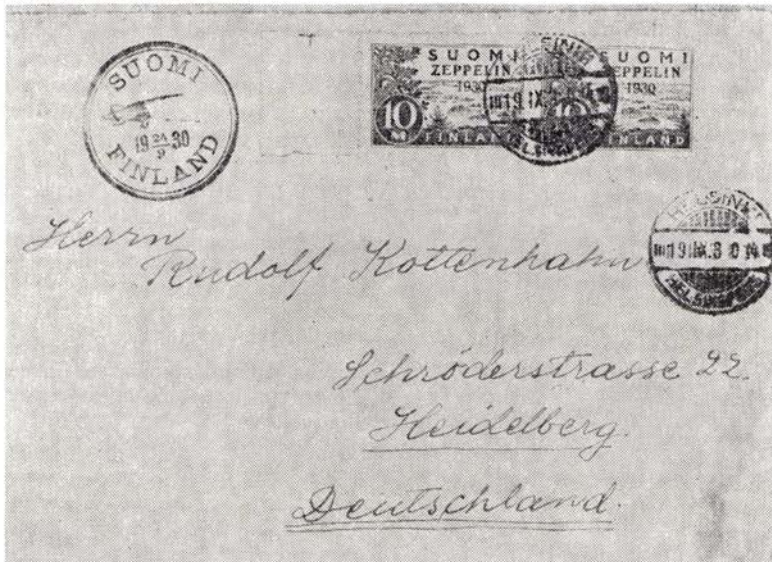 SUOMI
19 24/9 30
FINLAND
SUOMI
ZEPPELIN
1930
10
FINLAND
SUOMI
ZEPPELIN
1930
10
FINLAND
HELSINKI
HELSINGFORS
HELSINKI
19.IX.30 14
HELSINGFORS
Herrn
Rudolf Kottenhahn
Schröderstrasse 22.
Heidelberg.
Deutschland.